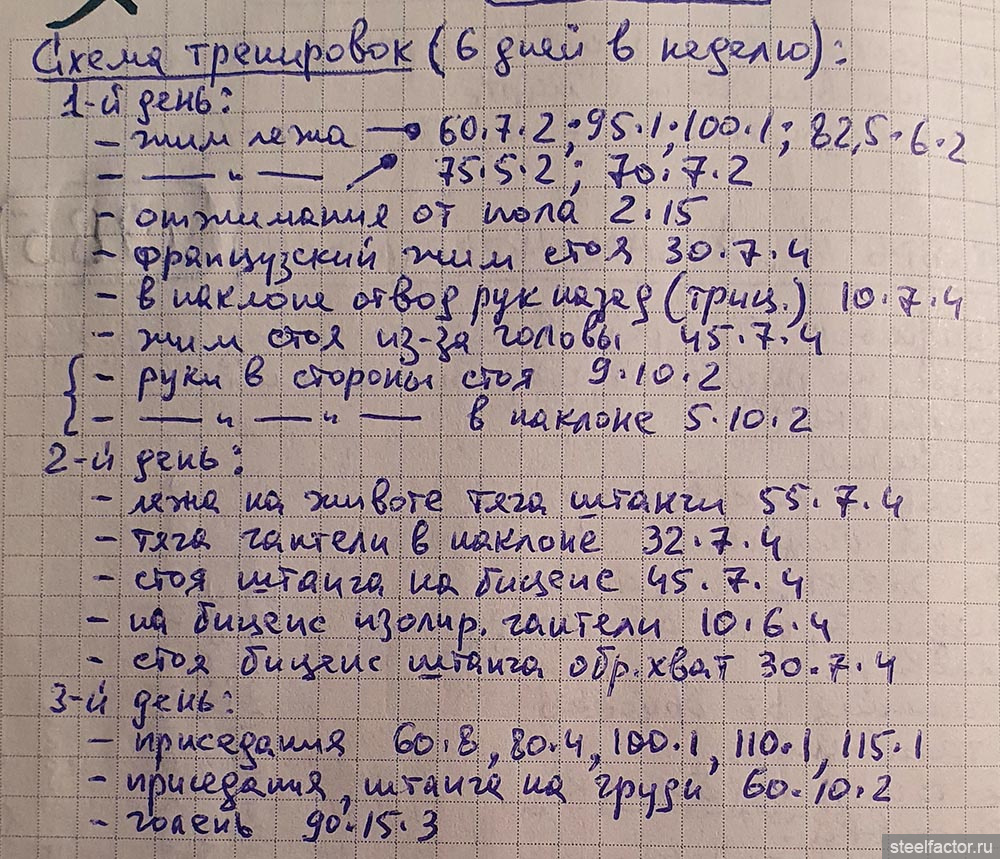 Схема тренировок (6 дней в неделю):
1-й день:
- жим лежа 60·7·2; 95·1; 100·1; 82,5·6·2
- — " — 75·5·2; 70·7·2
- отжимания от пола 2·15
- французский жим стоя 30·7·4
- в наклоне отвод рук назад (триц.) 10·7·4
- жим стоя из-за головы 45·7·4
- руки в стороны стоя 9·10·2
- — " — " — в наклоне 5·10·2
2-й день:
- лежа на животе тяга штанги 55·7·4
- тяга гантели в наклоне 32·7·4
- стоя штанга на бицепс 45·7·4
- на бицепс изолир. гантели 10·6·4
- стоя бицепс штанга обр. хват 30·7·4
3-й день:
- приседания 60·8, 80·4, 100·1, 110·1, 115·1
- приседания, штанга на груди 60·10·2
- голень 90·15·3
steelfactor.ru